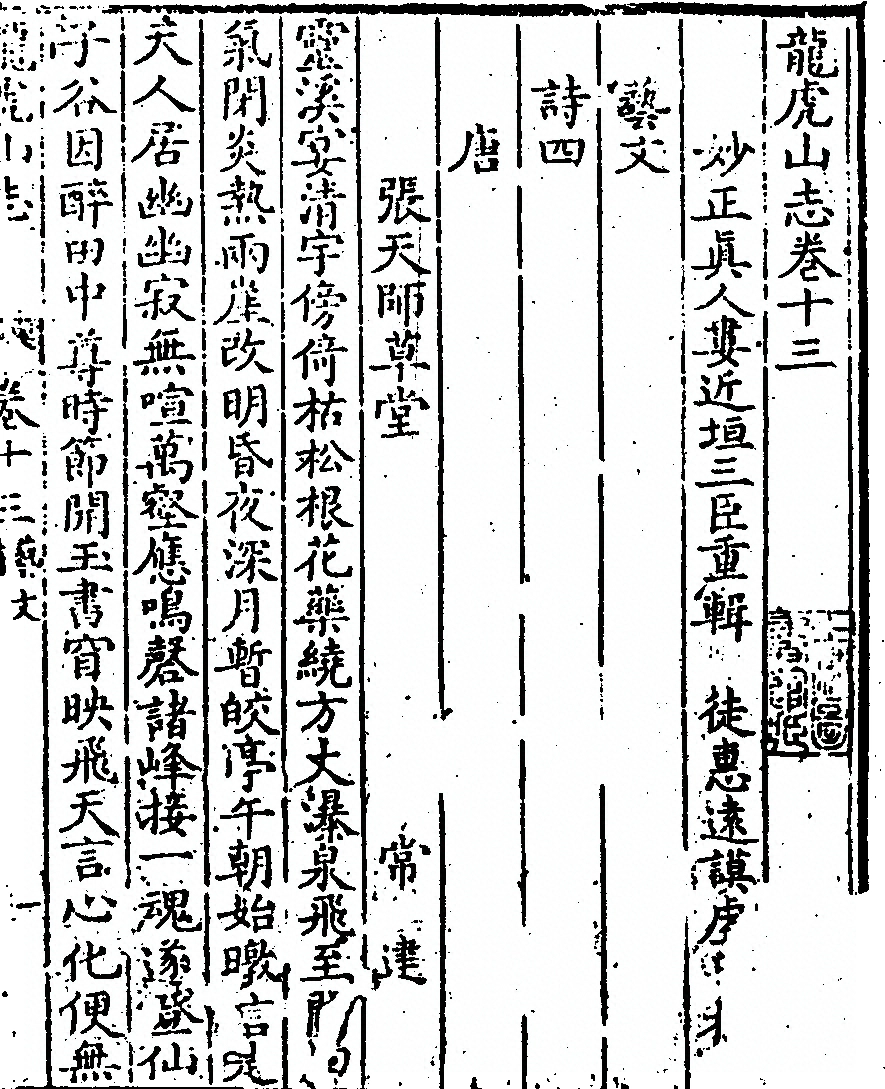 龍虎山志卷十三
妙正眞人婁近垣三臣重輯 徒惠遠謨虔
藝文
詩四
唐
張天師草堂 常建
靈溪宴清宇傍倚枯松根花藥繞方丈瀑泉飛至門
氣閉炎熱雨崖改明昏夜深月暫皎亭午朝始暾言是
夫人居幽幽寂無喧萬壑應鳴磬諸峰接一魂遂登仙
子谷因醉田中尊時節開玉書窅映飛天言心化便無
龍虎山志 卷十三 藝文 一